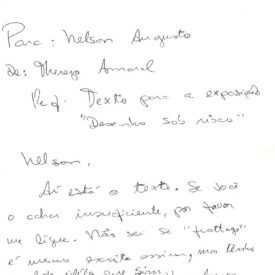 Para: Nelson Augusto
de: Thereza Amaral
Ref: Texto para a exposição
"Desenho sob risco"
Nelson,
Aí está o texto. Se você
o achar insuficiente, por favor
me ligue. Não sei se "frottage"
é mesmo escrita assim, mas tenho
que sim,